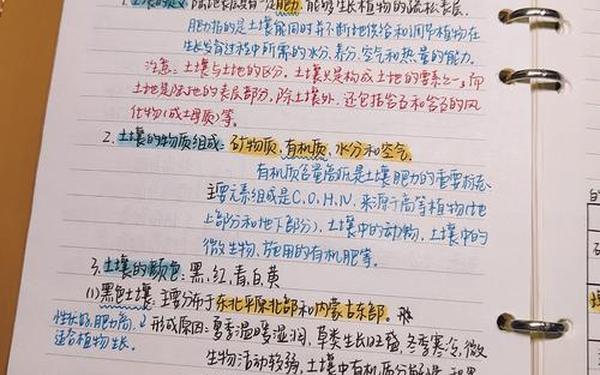 1.土壤的定义:陆地表层具有一定肥力,能够生长植物的疏松表层。
肥力指的是土壤能同时并不断地供给和调节植物在
生长发育过程中所需的水分、养分、空气和热量的能力。
注意:土壤与土地的区分,土壤只是构成土地的要素之一,而
土地是陆地的表层部分,除土壤外,还包括岩石和岩石的风
化物(成土母质)等。
2.土壤的物质组成:矿物质,有机质,水分和空气。
有机质含量高低是土壤肥力的重要标志
主要元素组成是C、O、H、N,来源于高等植物(地
上部分和地下部分),土壤中的动物,土壤中的
微生物,施用的有机肥等。
3.土壤的颜色:黑、红、青、白、黄
(1)黑色土壤:主要分布于东北平原北部和内蒙古东部。
性状好,肥力高,
适合植物生长。
形成原因:夏季温暖湿润,草类生长旺盛,冬季寒冷,微
生物活动较弱,土壤中有机质分解慢,积累